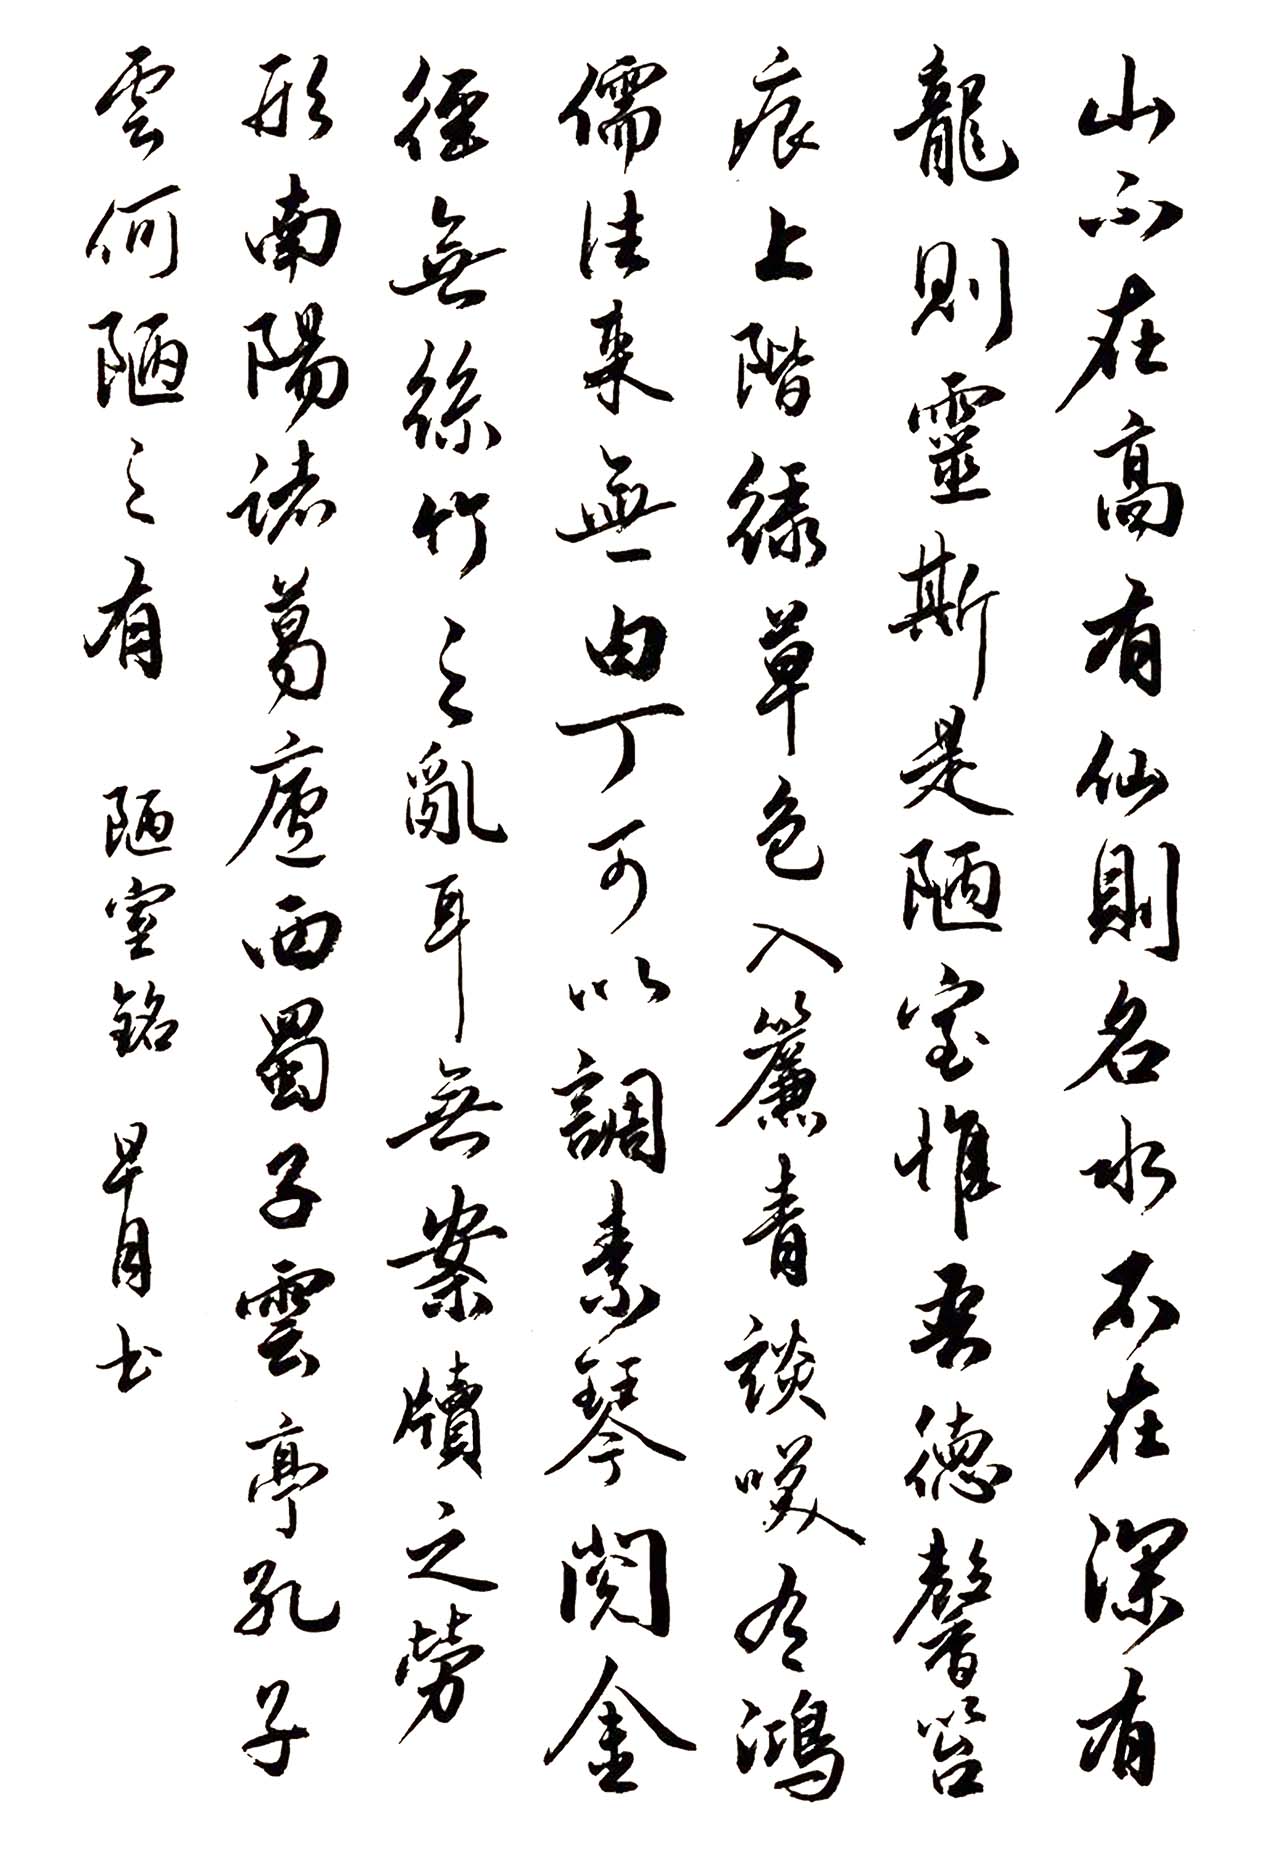 山不在高有仙則名水不在深有
龍則靈斯是陋室惟吾德馨苔
痕上階綠草色入簾青談笑有鴻
儒往來無白丁可以調素琴閱金
經無絲竹之亂耳無案牘之勞
形南陽諸葛廬西蜀子雲亭孔子
雲何陋之有 陋室銘 早月书